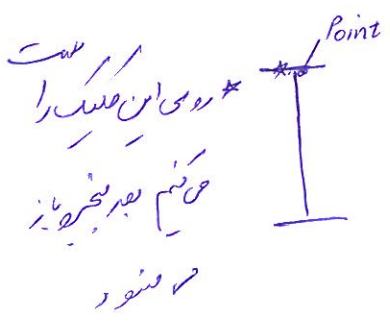 Point
* روی این کلیک راست
می کنیم بعد پنجره باز
می شود